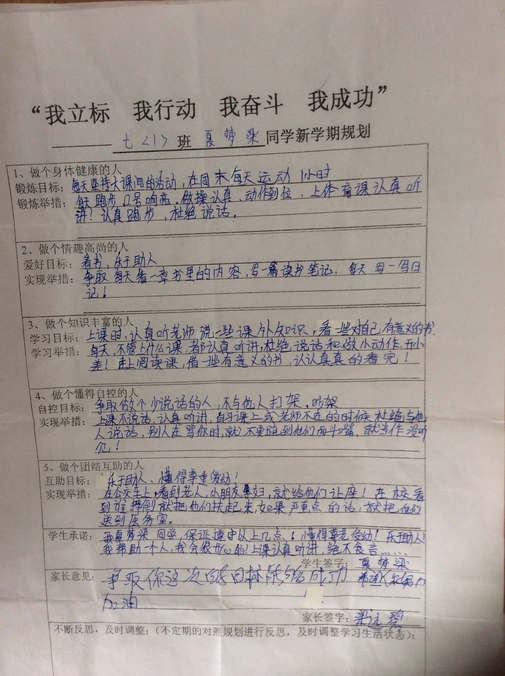 “我立标 我行动 我奋斗 我成功”
七<1>班 夏梦梁 同学新学期规划
1、做个身体健康的人
锻炼目标：每天坚持大课间的活动，在周末每天运动1小时
锻炼举措：每天跑步口号响亮，做操认真，动作到位，上体育课认真听
讲！认真跑步，杜绝说话。
2、做个情趣高尚的人
爱好目标：看书，乐于助人
实现举措：争取每天看一章书里的内容，写一篇读书笔记，每天写一写日
记！
3、做个知识丰富的人
学习目标：上课时，认真听老师说一些课外知识，看一些对自己有意义的书
学习举措：每天，不管上什么课，都认真听讲，杜绝说话和做小动作，开小
差！在上阅读课，借一些有意义的书，认认真真的看完！
4、做个懂得自控的人
自控目标：争取做个少说话的人，不与他人打架、吵架
实现举措：上课不说话，认真听讲，自习课上或老师不在的时候杜绝与他
人说话，别人在骂你时，就不要跑到他们面斗嘴，就当作没听
见！
5、做个团结互助的人
互助目标：乐于助人、懂得尊重友好！
实现举措：在公交车上，看到老人、小朋友、孕妇，就给他们让座！在校看
到谁摔倒就把他们扶起来，如果严重点的话，就把他们
送到医务室。
学生承诺：我夏梦梁同学，保证遵守以上几点，！懂得尊老爱幼！乐于助人！
我帮助一个人，我会很开心的！上课认真听讲，绝不食言……
学生签字：夏梦梁
家长意见：争取你这次的目标能够成功
加油
家长签字：梁
不断反思，及时调整：（不定期的对照规划进行反思，及时调整学习生活状态）：